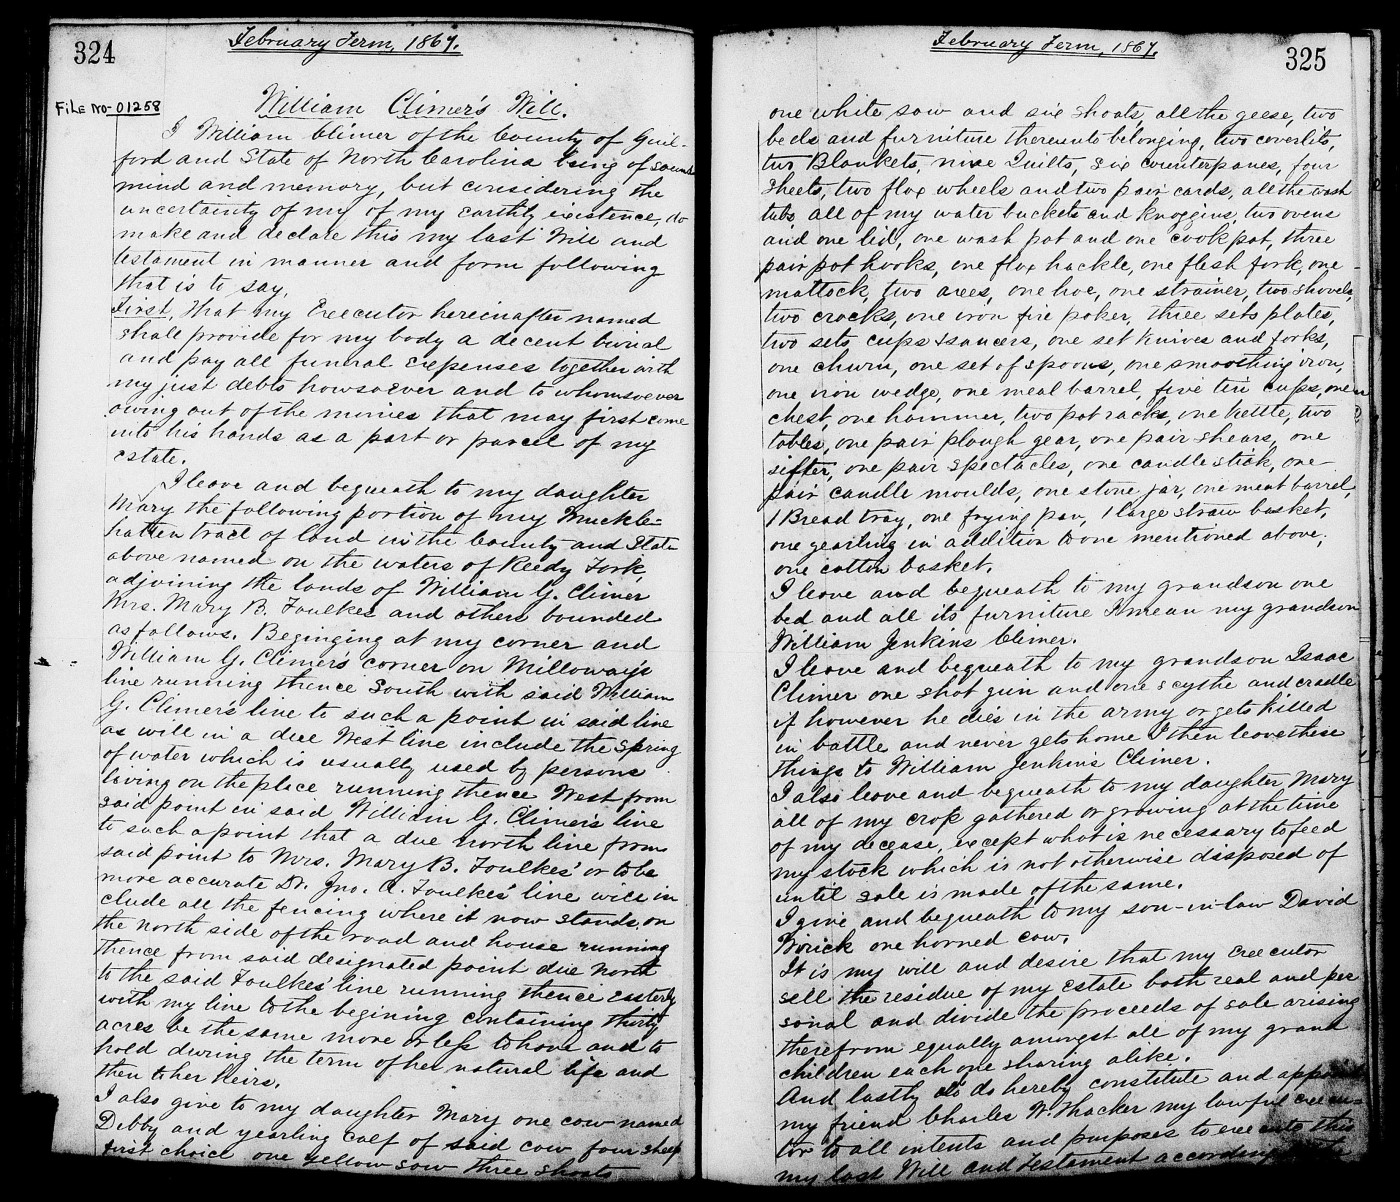 324
February Term, 1867.
File No-01258
William Climer's Will.
I William Climer of the County of Guil-
ford and State of North Carolina being of sound
mind and memory, but considering the
uncertainty of my of my earthly existence, do
make and declare this my last Will and
testament in manner and form following
that is to say,
First, That my Executor hereinafter named
shall provide for my body a decent burial
and pay all funeral expenses together with
my just debts howsoever and to whomsoever
owing out of the monies that may first come
into his hands as a part or parcel of my
estate.
I leave and bequeath to my daughter
Mary the following portion of my Muckle=
hatten tract of land in the County and State
above named on the waters of Reedy Fork,
adjoining the lands of William G. Climer
Mrs. Mary B. Foulkes and others bounded
as follows. Beginging at my corner and
William G. Climer's corner on Milloway's
line running thence South with said William
G. Climer's line to such a point in said line
as will in a due West line include the Spring
of water which is usually used by persons
living on the place running thence West from
said point in said William G. Climer's line
to such a point that a due north line from
said point to Mrs. Mary B. Foulkes' or to be
more accurate Dr. Jno. A. Foulkes' line will in
clude all the fencing where it now stands on
the north side of the road and house running
thence from said designated point due North
to the said Foulkes' line running thence easterly
with my line to the begining containing thirty
acres be the same more or less to have and to
hold during the term of her natural life and
then to her heirs.
I also give to my daughter Mary one cow named
Debby and yearling calf of said cow four sheep
first choice one yellow sow three shoats
February Term, 1867.
325
one white sow and six shoats, all the geese, two
beds and furniture thereunto belonging, two coverlits,
two Blankets, nine Quilts, six counterpanes, four
sheets, two flax wheels and two pair cards, all the wash
tubs all of my water buckets and knoggins, two ovens
and one lid, one wash pot and one cook pot, three
pair pot hooks, one flax hackle, one flesh fork, one
mattock, two axes, one hoe, one strainer, two shovels,
two crocks, one iron fire poker, three sets plates,
two sets cups & saucers, one set knives and forks,
one churn, one set of spoons, one smoothing iron,
one iron wedge, one meal barrel, five tin cups, one
chest, one hammer, two pot racks, one kettle, two
tables, one pair plough gear, one pair shears, one
sifter, one pair spectacles, one candle stick, one
pair candle moulds, one stone jar, one meat barrel,
1 Bread tray, one frying pan, 1 large straw basket,
one yearling in addition to one mentioned above,
one cotton basket.
I leave and bequeath to my grandson one
bed and all its furniture I mean my grandson
William Jenkins Climer.
I leave and bequeath to my grandson Isaac
Climer one shot gun and one scythe and cradle
if however he dies in the army or gets killed
in battle and never gets home I then leave these
things to William Jenkins Climer.
I also leave and bequeath to my daughter Mary
all of my crop gathered or growing at the time
of my decease, except what is necessary to feed
my stock which is not otherwise disposed of
until sale is made of the same.
I give and bequeath to my son-in-law David
Wirick one horned cow.
It is my will and desire that my executor
sell the residue of my Estate both real and per
sonal and divide the proceeds of sale arising
therefrom equally amongst all of my grand
children each one sharing alike.
And lastly do do hereby constitute and appoint
my friend Charles W. Thacker my lawful execu=
tor to all intents and purposes to execute this
my last Will and Testament according